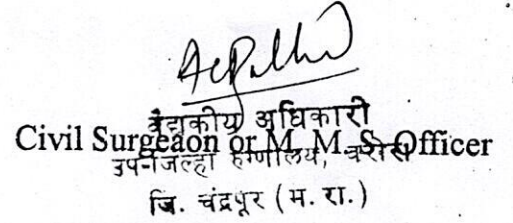 वैद्यकीय अधिकारी
Civil Surgeon or M. M. S. Officer
उप-जिल्हा रुग्णालय, वरोरा
जि. चंद्रपूर (म. रा.)